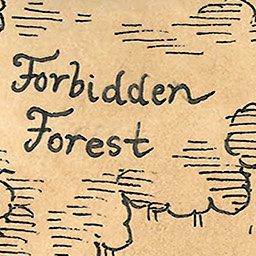 Forbidden
Forest